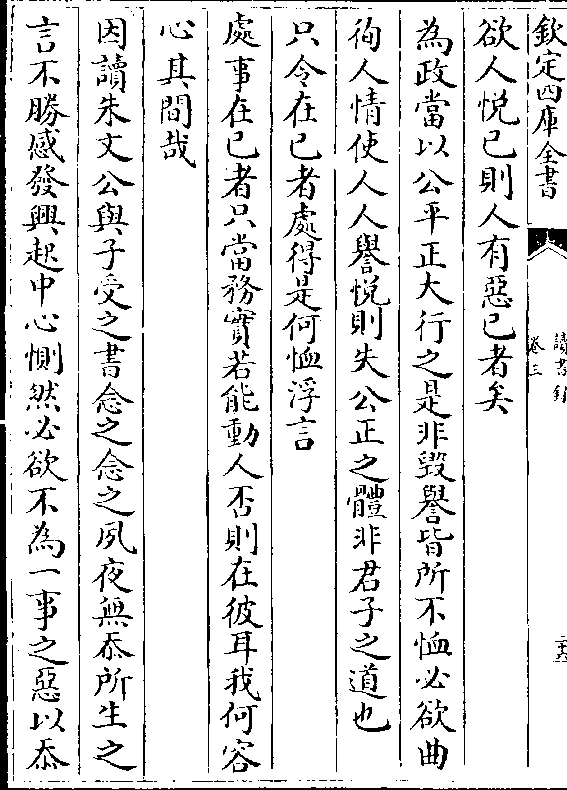 欽定四庫全書
讀書録
卷三
欲人悅已則人有惡已者矣
為政當以公平正大行之是非毀譽皆所不恤必欲曲
徇人情使人人譽悅則失公正之體非君子之道也
只令在已者處得是何恤浮言
處事在已者只當務實若能動人否則在彼耳我何容
心其間哉
因讀朱文公與子受之書念之念之夙夜無忝所生之
言不勝感發興起中心惻然必欲不為一事之惡以忝